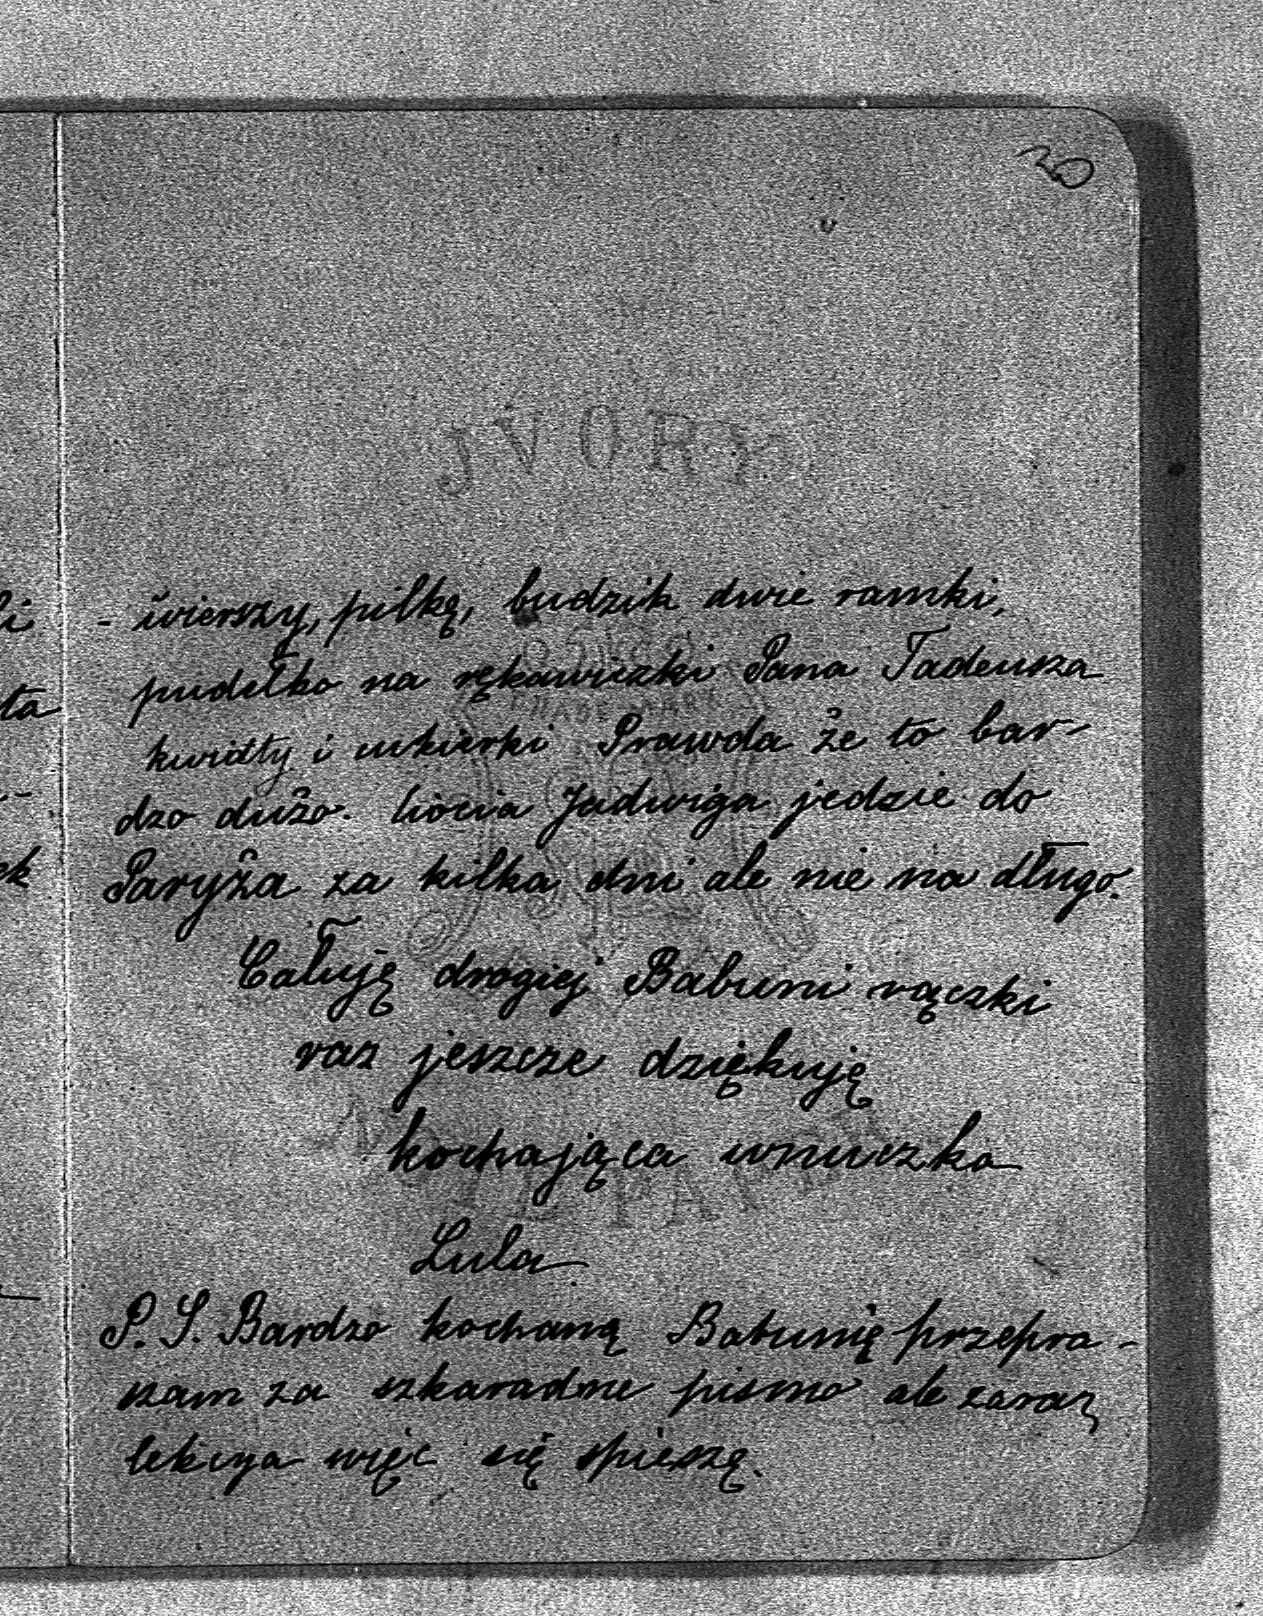 30
- wierszy, piłkę, budzik dwie ramki,
pudełko na rękawiczki Pana Tadeusza
kwiatty i cukierki Prawda że to bar-
dzo dużo. Ciocia Jadwiga jedzie do
Paryża za kilka dni ale nie na długo.
Całuję drogiej Babuni rączki
raz jeszcze dziękuję
kochająca wnuczka
Lula
P. S. Bardzo kochaną Babunię przepra-
szam za szkaradne pismo ale zaraz
lekcya więc się spieszę.
JVORY
TRADE MARK